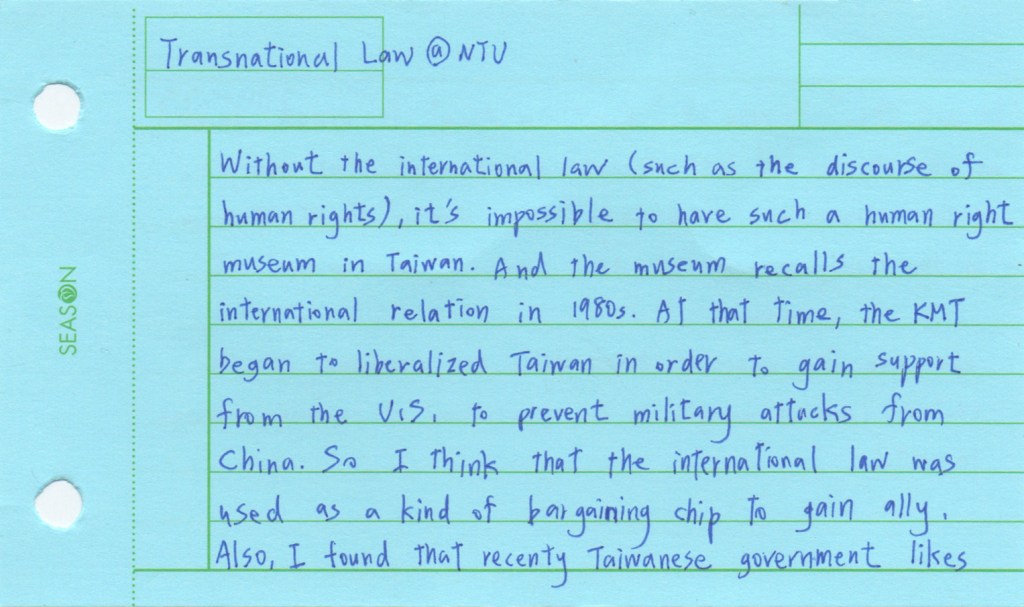 Transnational Law @ NTU
Without the international law (such as the discourse of
human rights), it's impossible to have such a human right
museum in Taiwan. And the museum recalls the
international relation in 1980s. At that time, the KMT
began to liberalized Taiwan in order to gain support
from the U.S. to prevent military attacks from
China. So I think that the international law was
used as a kind of bargaining chip to gain ally.
Also, I found that recenty Taiwanese government likes
SEASON